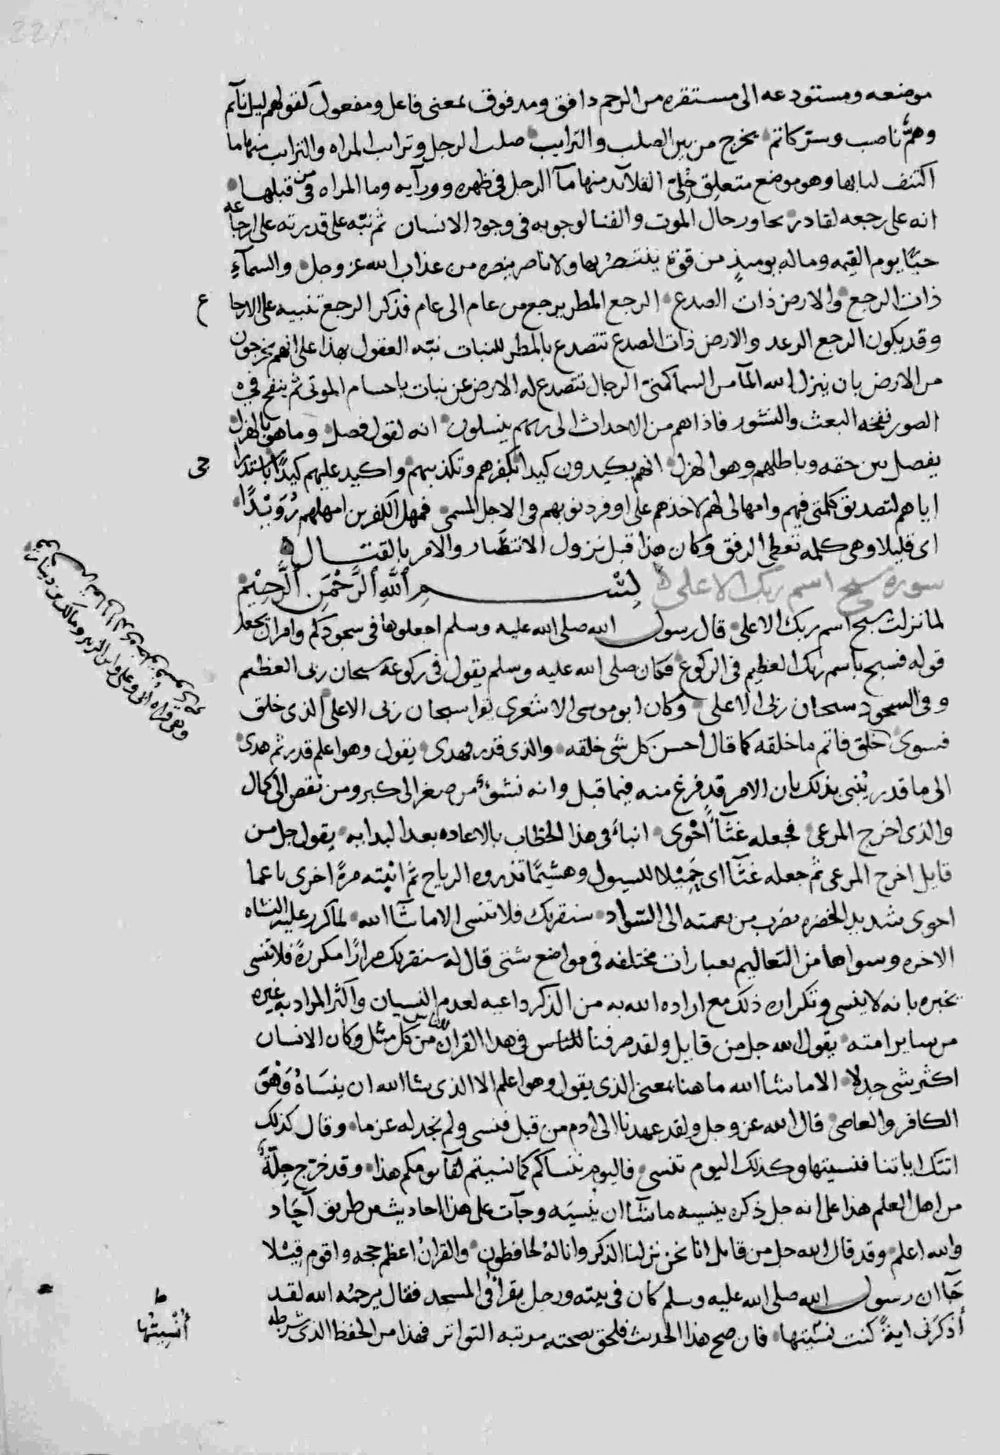 موضعه ومستودعه الى مستقره من الرحم دافق ومدفوق بمعنى فاعل ومفعول كقولهم ليل نائم
وهم ناصب وستر كاتم يخرج من بين الصلب والترايب صلب الرجل وترايب المراه والترايب منهما ما
اكتنف لباتها وهو موضع متعلق حلى القلائد منها مآ الرجل في ظهره وورآيه وما المراه من قبلها
انه على رجعه لقادر يحاور حال الموت والفنا لوجوبه في وجود الانسان ثم نبه على قدرته على ارجاعه
حيًا يوم القيمه وماله يوميذٍ من قوة ينتصر بها ولا ناصر ينصره من عذاب الله عز وجل والسمآءِ
ذات الرجع والارض ذات الصدع الرجع المطر يرجع من عام الى عام فذكر الرجع تنبيه على الارجاع
وقد يكون الرجع الرعد والارض ذات الصدع تتصدع بالمطر للنبات نبه العقول بهذا على انهم يخرجون
من الارض بان ينزل الله المآ من السما كمنىّ الرجال تتصدع له الارض عن نبات باجسام الموتى ثم ينفخ في
الصور نفخه البعث والنشور فاذا هم من الاجداث الى ربهم ينسلون انه لقول فصل وما هو بالهزل
يفصل بين حقه وباطلهم وهو الهزل انهم يكيدون كيدًا بكفرهم وتكذيبهم واكيد عليهم كيدًا باستدراجى
اياهم لتصديق كلمتى فيهم وامهالى لهم لاخذهم على اوفر ذنوبهم فى الاجل المسمى فمهل الكفرين امهلهم رُوَيْدًا
اى قليلا وهى كلمه تعطى الرفق وكان هذا قبل نزول الانتظار والامر بالقتال
سورة سبح اسم ربك الاعلى بِسْمِ ٱللَّهِ ٱلرَّحْمَٰنِ ٱلرَّحِيمِ
لما نزلت سبح اسم ربك الاعلى قال رسول الله صلى الله عليه وسلم اجعلوها فى سجودكم وامر ان يجعل
قوله فسبح باسم ربك العظيم فى الركوع فكان صلى الله عليه وسلم يقول فى ركوعه سبحان ربى العظيم
وفى السجود سبحان ربى الاعلى وكان ابو موسى الاشعرى يقرا سبحان ربى الاعلى الذى خلق
فسوى خلق فاتم ما خلقه كما قال احسن كل شى خلقه والذى قدر فهدى يقول وهو اعلم قدر ثم هدى
الى ما قدر يُنبى بذلك بان الامر قد فرغ منه فيما قبل وانه نشؤٌ من صغر الى كبر ومن نقص الى كمال
والذى اخرج المرعى فجعله غثآءً أحْوى انبآءٌ فى هذا الخطاب بالاعاده بعد البدايه يقول جل من
قايل اخرج المرعى ثم جعله غثآءً اى حَمِيْلا للسيول وهشيمًا تذروه الرياح ثم انبته مرةً اخرى ناعما
احوى شديد الخضره يضرب من نعمته الى السَّواد سنقريك فلا تنسى الا ما شآ الله لما كرر عليه النشاه
الاخره وسواها من التعاليم بعبارات مختلفه فى مواضع شتى قال له سنقريك مرارًا مكررةً فلا تنسى
يخبره بانه لا ينسى وتكراره ذلك مع اراده الله به من الذكر داعيه لعدم النسيان واكثر المراد به غيره
من ساير امته يقول الله جل من قايل ولقد صرفنا للناس فى هذا القران من كل مثل وكان الانسان
اكثر شى جدلا الا ما شا الله ما هنا بمعنى الذى يقول وهو اعلم الا الذى يشا الله ان ينسَاهُ وَهُوَ
الكافر والعاصى قال الله عز وجل ولقد عهدنا الى ادم من قبل فنسى ولم نجد له عزما وقال كذلك
اتتك اياتنا فنسيتها وكذلك اليوم تنسى فاليوم ننساكم كما نسيتم لقآ يومكم هذا وقد خرّج جِلَّةٌ
من اهل العلم هذا على انه جل ذكره ينسيه ما شآ ان يُنسيَه وجآت على هذا احاديث من طريق آحَاد
والله اعلم وقد قال الله جل من قايل انا نحن نزلنا الذكر وانا لهُ لحافظون والقرانُ اعظم حجه واقوم قِيْلا
جَآ ان رسول الله صلى الله عليه وسلم كان فى بيته ورجل يقرأ فى المسجد فقال يرحمُه الله لقد
أذكرَنى ايةً كنت نسّيتها فان صح هذا الحديث فلحق بصحته مرتبه التواتر فهذا من الحفظ الذى شرطه
أُنْسِيتُها